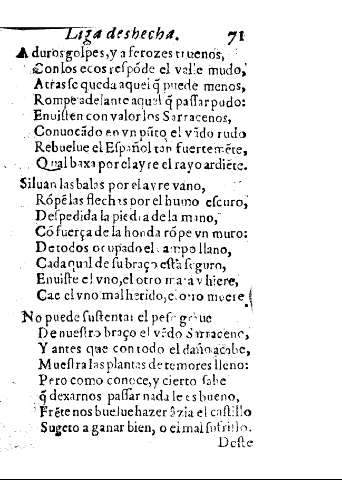 Liga deshecha. 71
A duros golpes, y a ferozes truenos,
Con los ecos respõde el valle mudo,
Atras se queda aquel q̃ puede menos,
Rompe adelante aquel q̃ passar pudo:
Enuisten con valor los Sarracenos,
Conuocãdo en vn pũto el vãdo rudo
Rebuelue el Español tan fuertemẽte,
Qual baxa por el ayre el rayo ardiẽte.
Siluan las balas por el ayre vano,
Rõpẽ las flechas por el humo escuro,
Despedida la piedra de la mano,
Cõ fuerça de la honda rõpe vn muro:
De todos ocupado el campo llano,
Cada qual de su braço està seguro,
Enuiste el vno, el otro mata y hiere,
Cae el vno mal herido, el otro muere.
No puede sustentar el peso graue
De nuestro braço el vãdo Sarraceno,
Y antes que con todo el daño acabe,
Muestra las plantas de temores lleno:
Pero como conoce, y cierto sabe
q̃ dexarnos passar nada le es bueno,
Frẽte nos buelue hazer àzia el castillo
Sugeto a ganar bien, o el mal sufrillo.
Deste